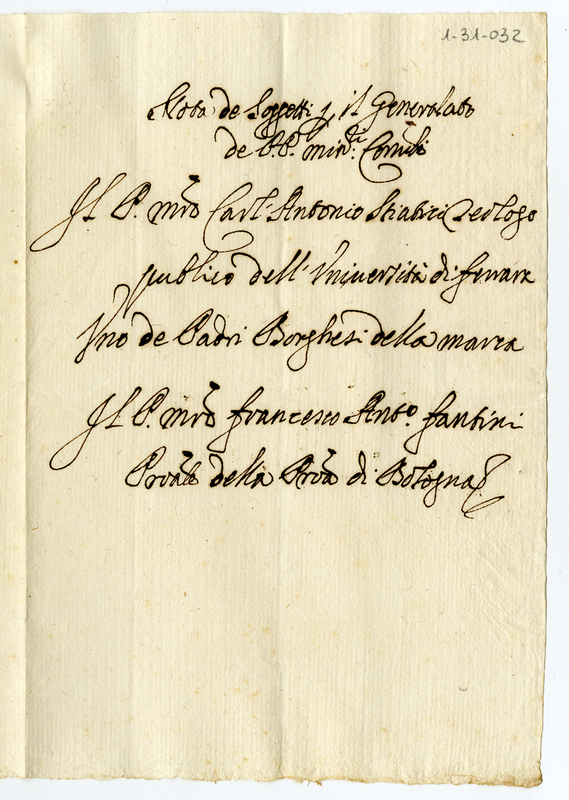 1-31-032
Nota de Soggetti p il Generalato
de P.P. min.ri Con.li
Il P. mro Carl' Antonio Teologo
publico dell' Università di ferrara
Uno de Padri Borghesi della marca
Il P. mro francesco Ant.o fantini
Proãle della Proã di Bologna